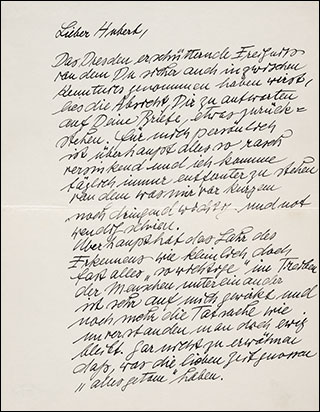 Lieber Hubert,
Das Dresden erschütternde Ereignis
von dem Du sicher auch inzwischen
Kenntnis genommen haben wirst,
liess die Absicht, Dir zu antworten
auf Deine Briefe, etwas zurück-
stehen. Für mich persönlich
ist überhaupt alles so rasch
versinkend und ich komme
täglich immer entfernter zu stehen
von dem was mir vor kurzem
noch dringend wichtig und not
wendig schien.
Überhaupt hat das Jahr des
Erkennens wie kleinlich doch
fast alles "so wichtige" im Treiben
der Menschen untereinander
ist sehr auf mich gewirkt und
noch mehr die Tatsache wie
unverstanden man doch ewig
bleibt. Gar nicht zu erwähnen
daß, was die lieben Zeitgenossen
"alles getan" haben.